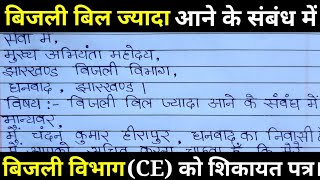 बिजली बिल ज्यादा आने के संबंध में
सेवा में,
मुख्य अभियंता महोदय,
झारखण्ड बिजली विभाग,
धनबाद, झारखण्ड।
विषय:- बिजली बिल ज्यादा आने के संबंध में
मान्यवर,
मैं चंदन कुमार हीरापुर, धनबाद का निवासी हूँ
बिजली विभाग(CE) को शिकायत पत्र।